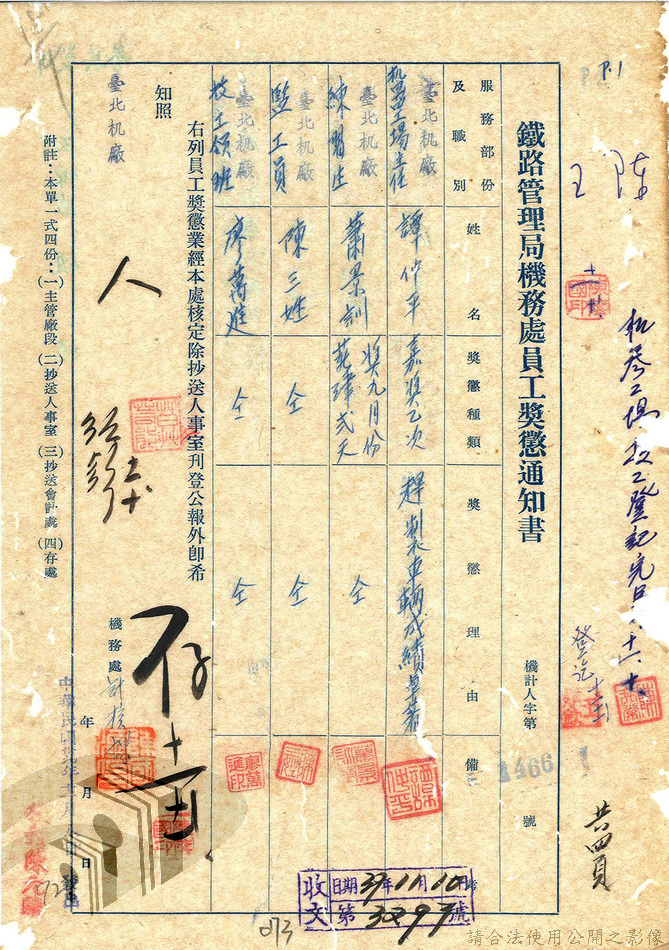 P.1
陳
機器工場技工登記完畢
登記
共四頁
鐵路管理局機務處員工獎懲通知書
機計人字第 1466 號
服務部份及職別
姓名
獎懲種類
獎懲理由
備考
臺北机廠
机器工場主任
譚仲平
嘉獎乙次
趕製車輛成績卓著
臺北机廠
練習生
蕭景訓
獎九月份
薪津弍天
仝
臺北机廠
監工員
陳三姓
仝
仝
臺北机廠
技工領班
廖萬進
仝
仝
右列員工獎懲業經本處核定除抄送人事室刊登公報外卽希
知照
臺北机廠
機務處
中華民國卅九年 月 日
附註：本單一式四份：（一）主管廠段（二）抄送人事室（三）抄送會計處（四）存處
人
存
收文
日期 39年11月10日
第 3297 號
073
請合法使用公開之影像